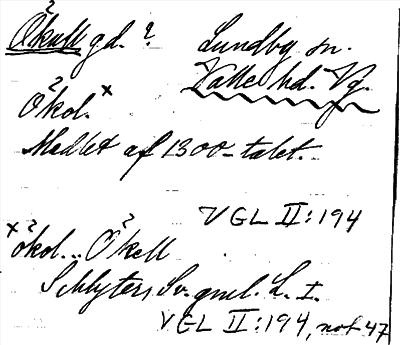 Ökull gd. ? Lundby sn.
Valle hd. Vg.
Ökol. x
Medlet af 1300-talet.
VGL II:194
x ökol.. Ökell
Schlyters Sv. gml. L. I.
VGL II:194, not 47